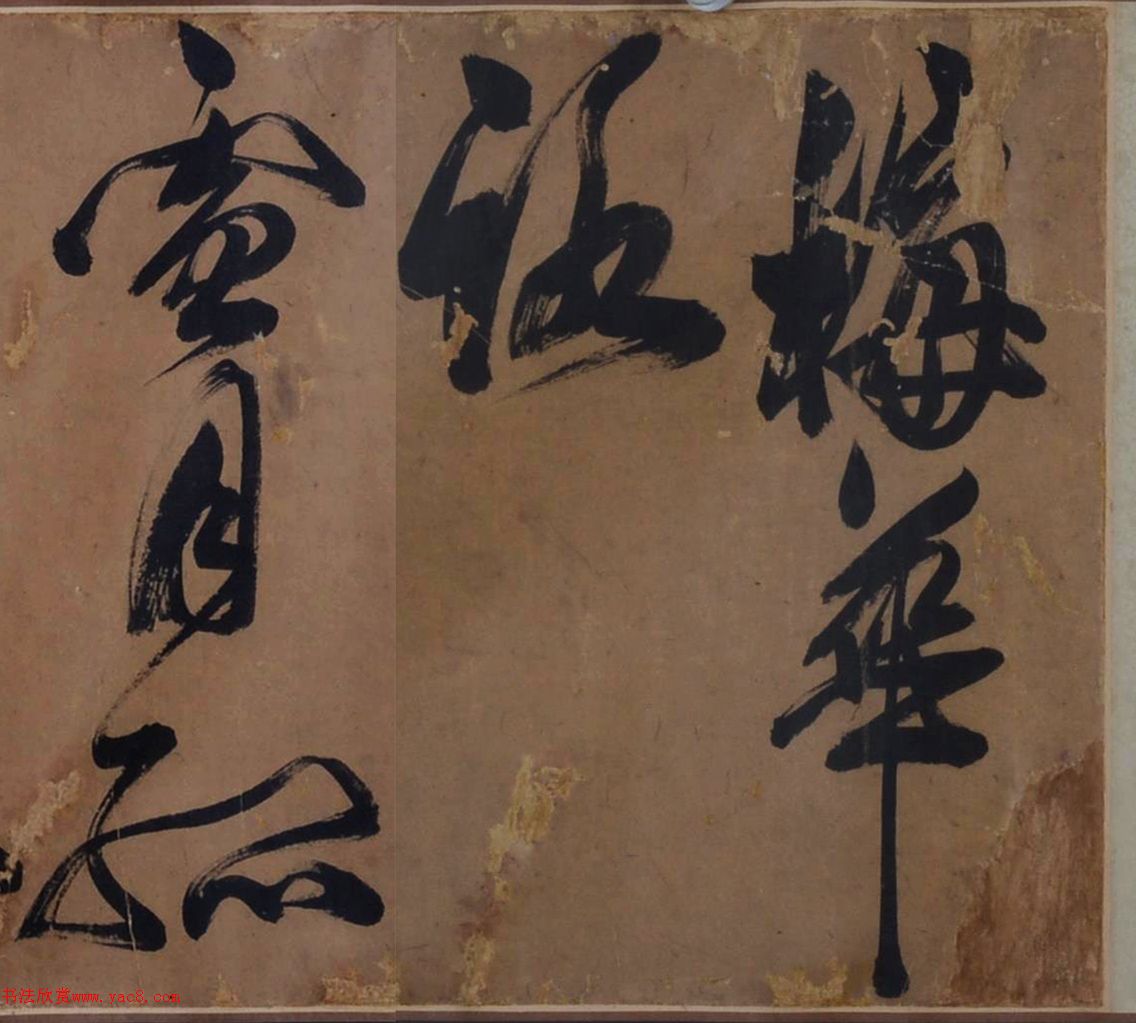 梅華
雪月孤
书法欣赏www.yac8.com